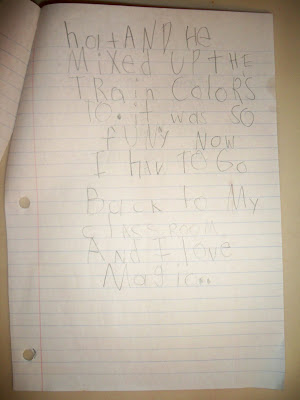 hat AND He
Mixed UP tHE
TRain COLORS
TO. it was SO
fUNY NOW
I hav TO GO
Back to My
CLASS ROOM
And I love
Magic..